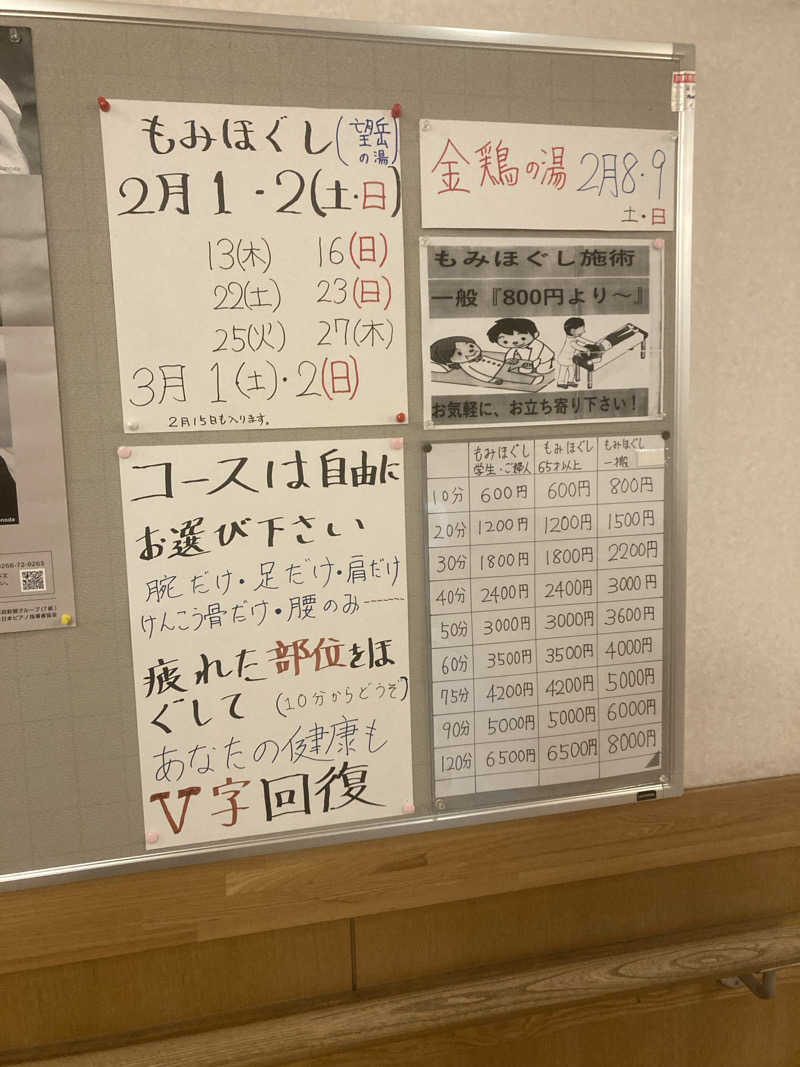 もみほぐし(望岳の湯)
2月1・2(土・日)
13(木) 16(日)
22(土) 23(日)
25(火) 27(木)
3月1(土)・2(日)
2月15日も入ります。
金鶏の湯 2月8・9
土・日
もみほぐし施術
一般『800円より～』
お気軽に、お立ち寄り下さい！
コースは自由に
お選び下さい
腕だけ・足だけ・肩だけ
けんこう骨だけ・腰のみ
疲れた部位をほ
ぐして(10分からどうぞ)
あなたの健康も
V字回復
もみほぐし 学生・ご婦人 もみほぐし 65才以上 もみほぐし 一般
10分 600円 600円 800円
20分 1200円 1200円 1500円
30分 1800円 1800円 2200円
40分 2400円 2400円 3000円
50分 3000円 3000円 3600円
60分 3500円 3500円 4000円
75分 4200円 4200円 5000円
90分 5000円 5000円 6000円
120分 6500円 6500円 8000円